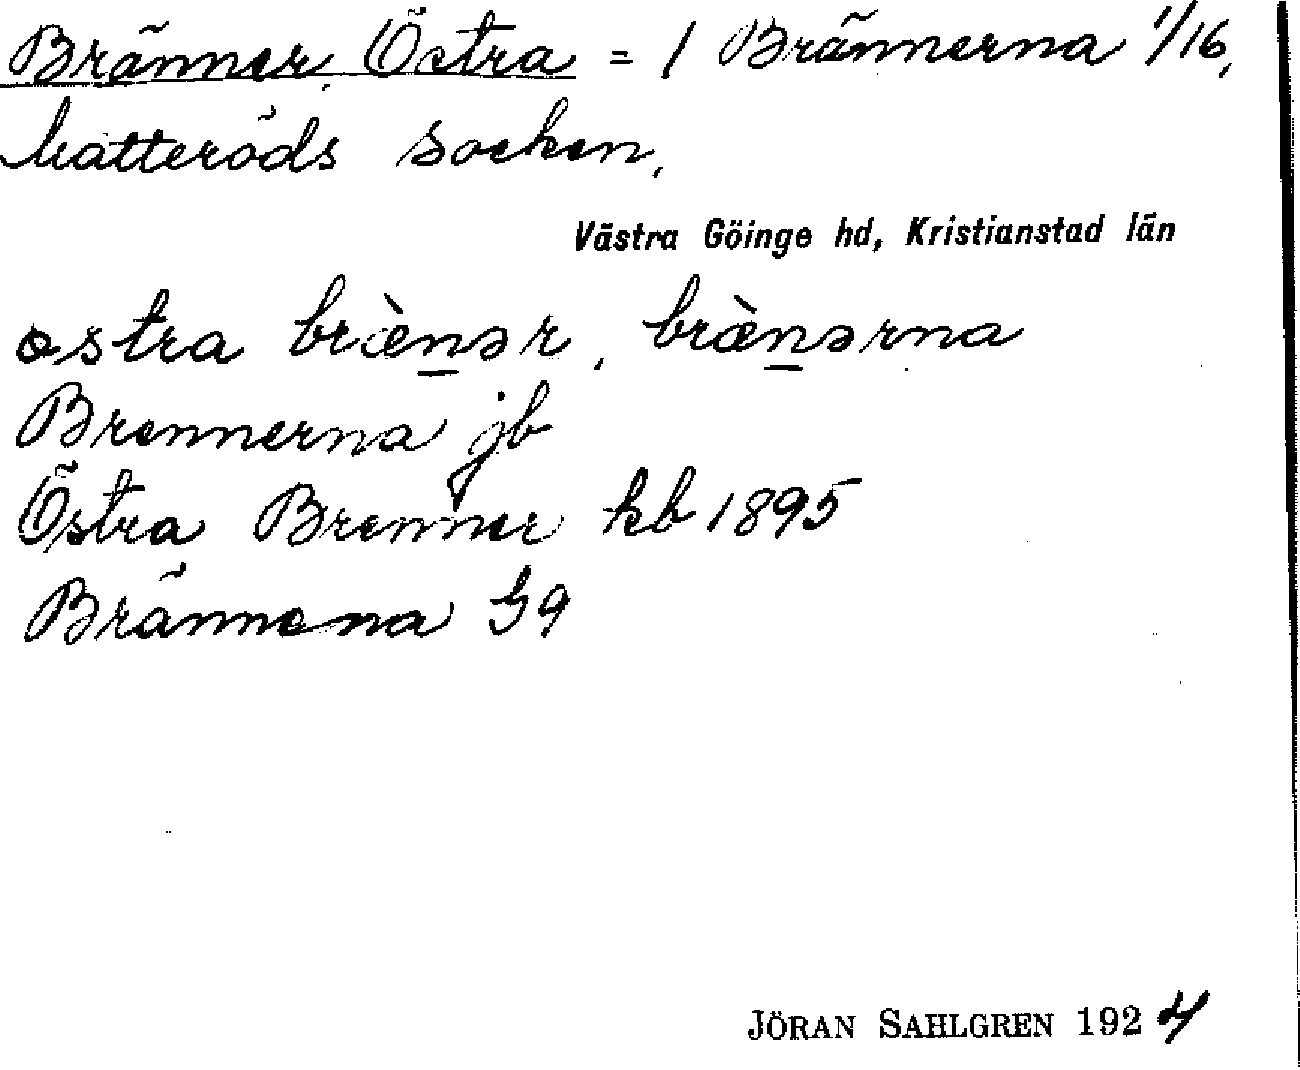 Bränner, Östra = 1 Brännerna 1/16,
Matteröds socken,
Västra Göinge hd, Kristianstad län
østra bræ̀nər, bræ̀nərna
Brennerna jb
Östra Brenner kb 1895
Brännena G9
JÖRAN SAHLGREN 1924